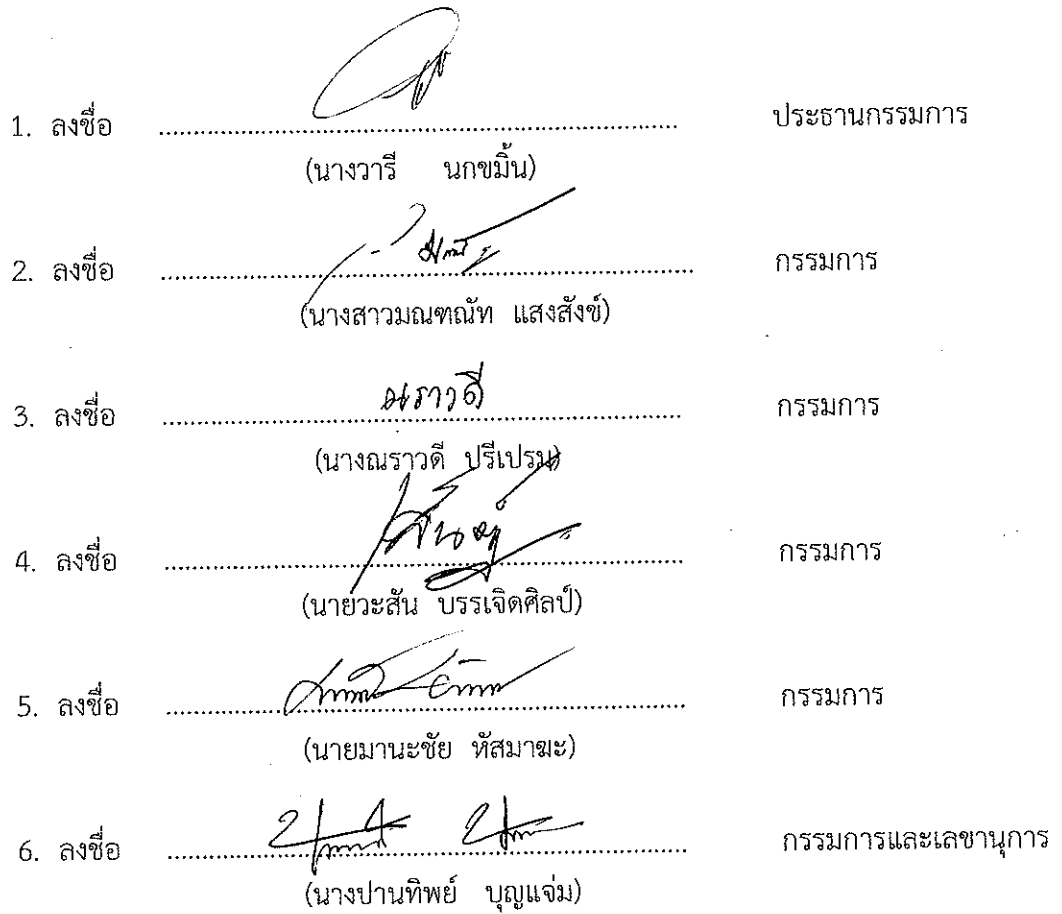 1. ลงชื่อ ........................................ ประธานกรรมการ
(นางวารี นกขมิ้น)
2. ลงชื่อ ........................................ กรรมการ
(นางสาวมณฑณัท แสงสังข์)
3. ลงชื่อ ณราวดี ........................................ กรรมการ
(นางณราวดี ปรีเปรม)
4. ลงชื่อ ........................................ กรรมการ
(นายวะสัน บรรเจิดศิลป์)
5. ลงชื่อ ........................................ กรรมการ
(นายมานะชัย หัสมาฆะ)
6. ลงชื่อ ........................................ กรรมการและเลขานุการ
(นางปานทิพย์ บุญแจ่ม)